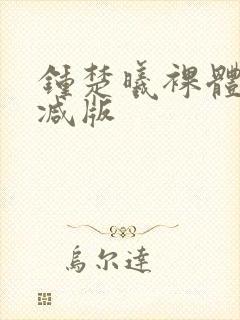 鍾楚曦裸體
減版
烏尔達